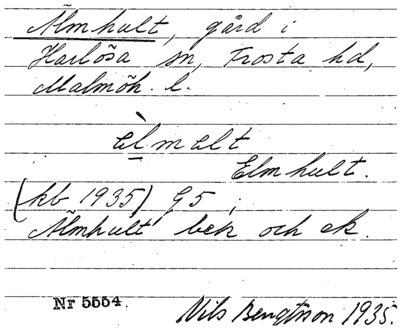 Älmhult, gård i
Harlösa sn, Frosta hd,
Malmöh. l.
èlmelt
Elmhult.
(kb 1935) G5,
Älmhult bek och ek.
Nr 5554.
Nils Bengtson 1935.